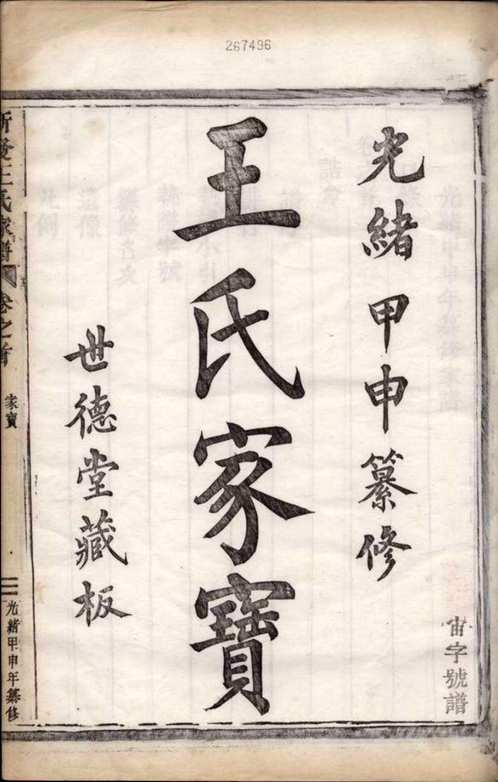 267496
光緒甲申纂修
宙字號譜
王氏家寶
世德堂藏板
王氏家譜
卷之首
家寶
二
光緒甲申年纂修